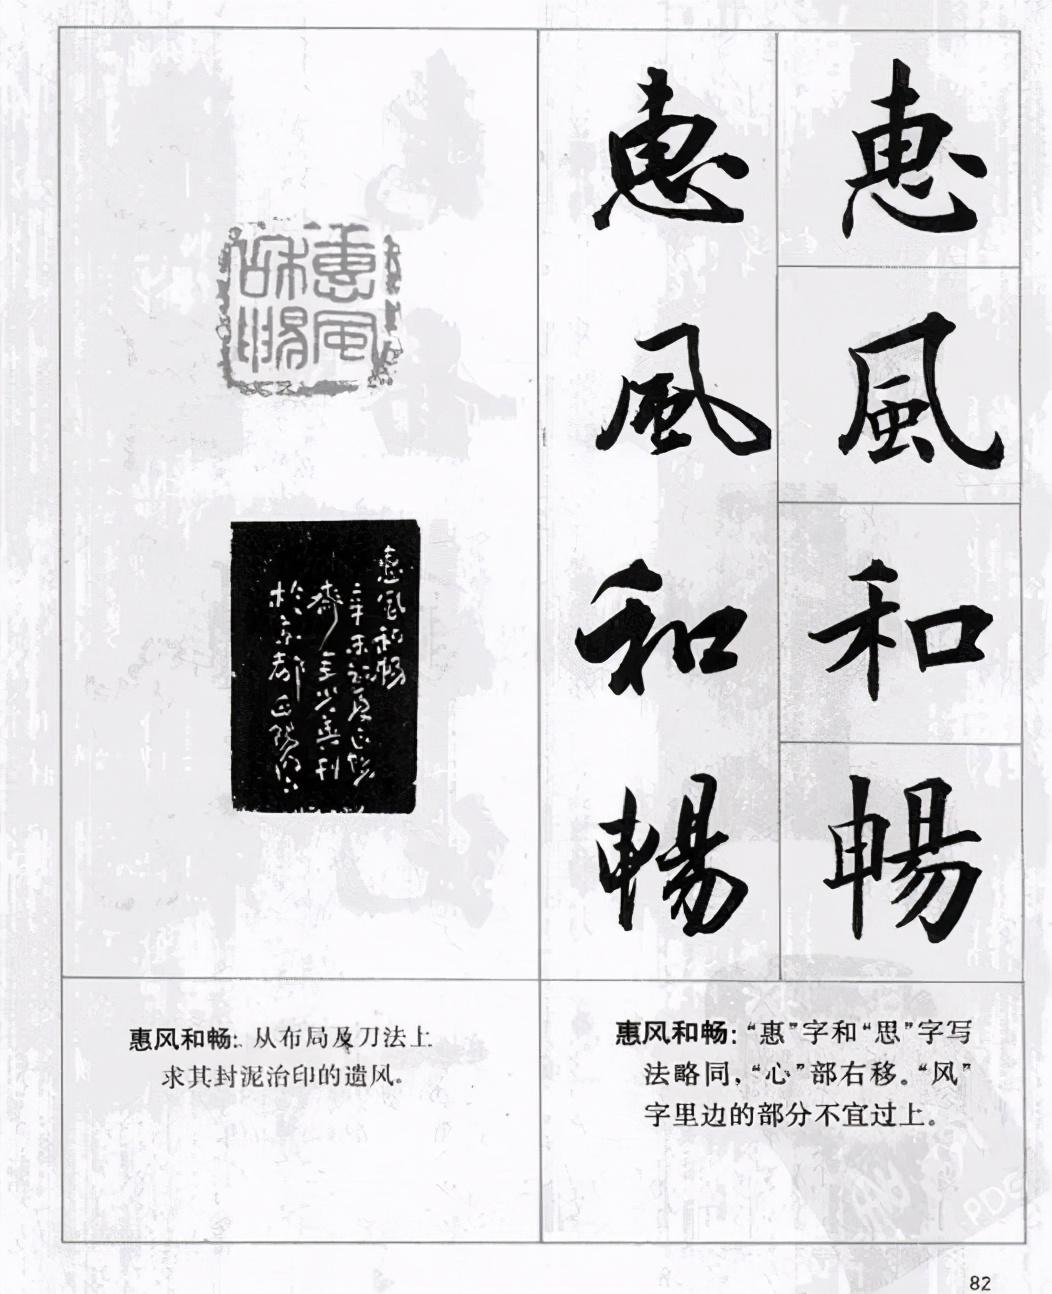 惠風和暢
惠風和暢
惠風和暢
惠風和暢
惠风和畅：从布局及刀法上
求其封泥治印的遗风。
惠风和畅：“惠”字和“思”字写
法略同，“心”部右移。“风”
字里边的部分不宜过上。
82